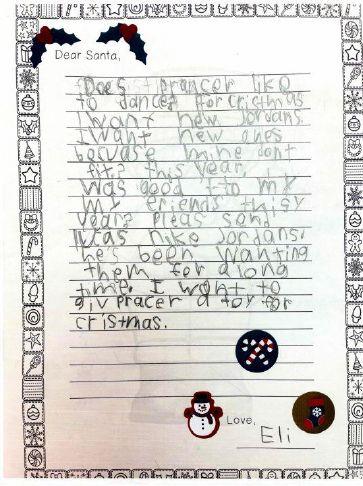 Dear Santa,
Does prancer like
to dance? For cristmas
I want new Jordans.
I want new ones
becuase mine dont
fit? this year, I
was good to my
my friends this
year? Pleas send
Lucas nike Jordans.
he's been wanting
them for a long
time. I want to
giv pracer a toy for
cristmas.
Love,
Eli